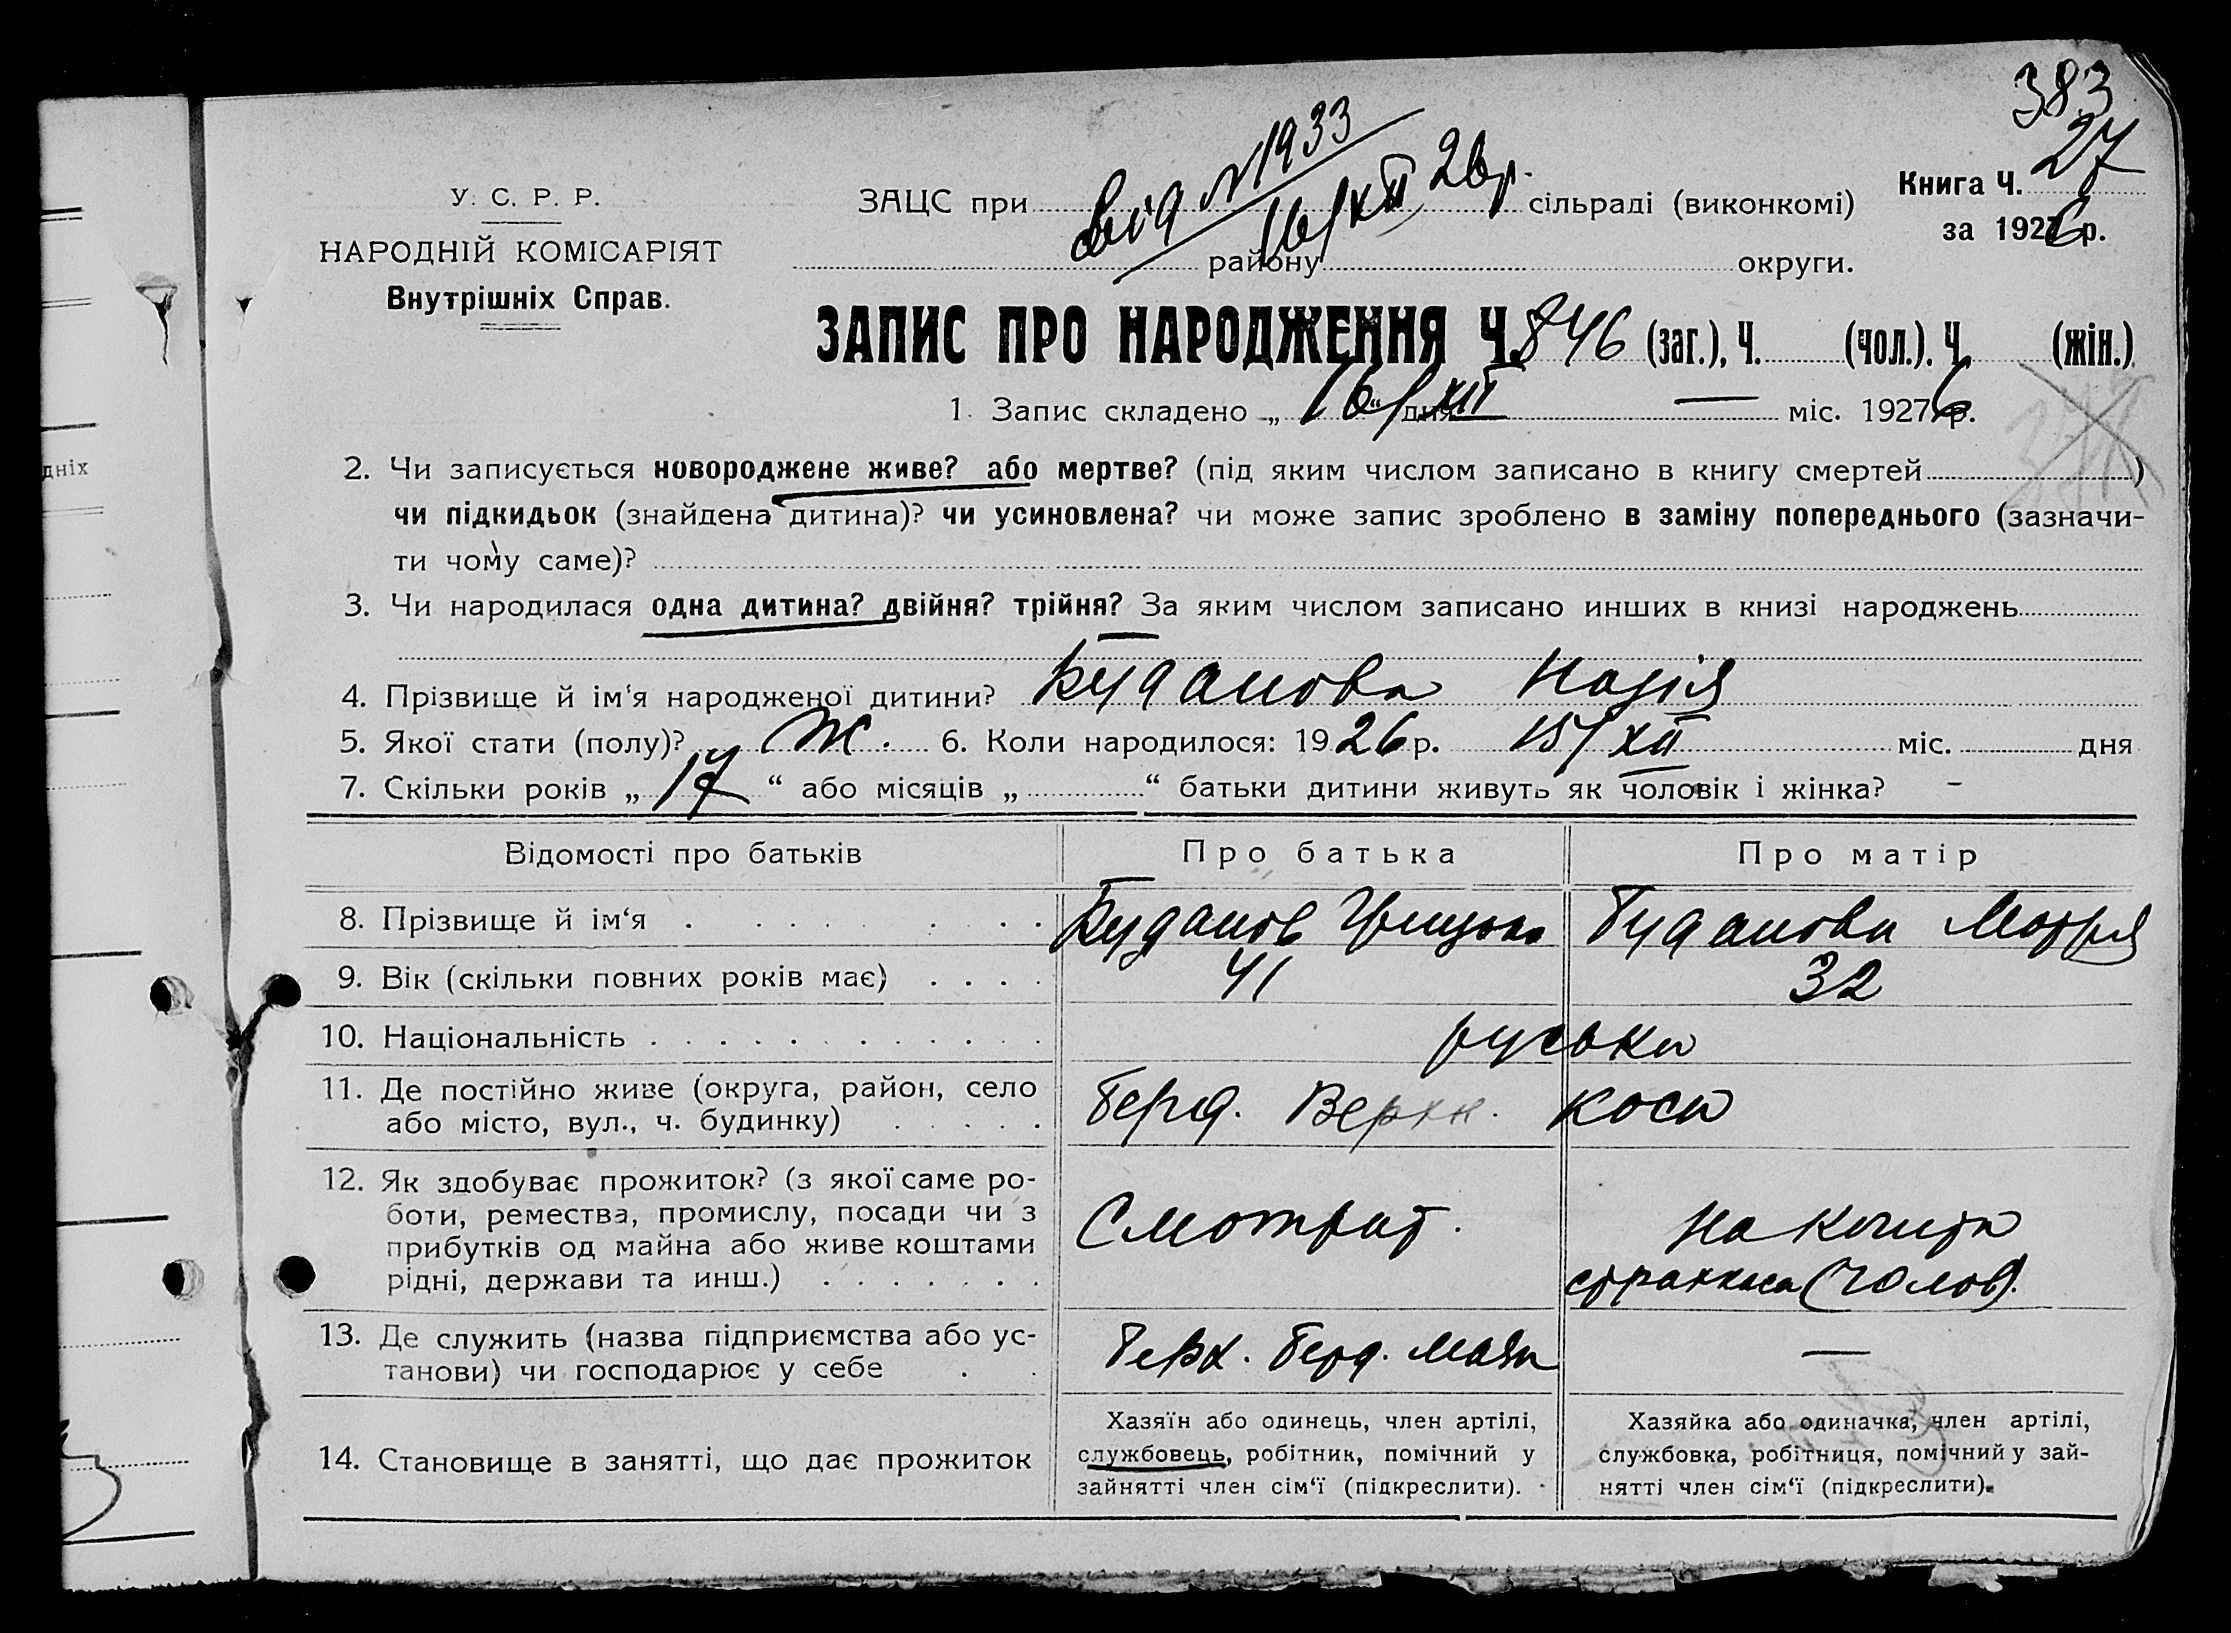 383
У. С. Р. Р.
НАРОДНІЙ КОМІСАРІЯТ
Внутрішніх Справ.
від N 1933
16/XII 26 р.
ЗАЦС при сільраді (виконкомі)
району округи.
Книга Ч. 27
за 1926 р.
ЗАПИС ПРО НАРОДЖЕННЯ Ч. 846 (заг.), Ч. (чол.). Ч. (жін.)
1. Запис складено „ 16/XII “ дня — міс. 1926 р.
2. Чи записується новороджене живе? або мертве? (під яким числом записано в книгу смертей )
чи підкидьок (знайдена дитина)? чи усиновлена? чи може запис зроблено в заміну попереднього (зазначи-
ти чому саме)?
3. Чи народилася одна дитина? двійня? трійня? За яким числом записано инших в книзі народжень
4. Прізвище й ім‘я народженої дитини? Буданова Надія
5. Якої стати (полу)? Ж. 6. Коли народилося: 1926 р. 15/XII міс. дня
7. Скільки років „ 17 “ або місяців „ “ батьки дитини живуть як чоловік і жінка? -
Відомості про батьків Про батька Про матір
8. Прізвище й ім‘я . . . . . . . Буданов Грицько Буданова Мотря
9. Вік (скільки повних років має) . . . . 41 32
10. Національність . . . . . . . . . . . . руська
11. Де постійно живе (округа, район, село
або місто, вул., ч. будинку) . . . . . Берд. Верхн. Коса
12. Як здобуває прожиток? (з якої саме ро-
боти, ремества, промислу, посади чи з
прибутків од майна або живе коштами
рідні, держави та инш.) . . . . . . .
Смотрит.
На кошти
(чолов).
13. Де служить (назва підприємства або ус-
танови) чи господарює у себе . .
Берд. маяк
—
14. Становище в занятті, що дає прожиток
Хазяїн або одинець, член артілі,
службовець, робітник, помічний у
зайнятті член сім‘ї (підкреслити).
Хазяйка або одиначка, член артілі,
службовка, робітниця, помічний у зай-
нятті член сім‘ї (підкреслити).
дніх